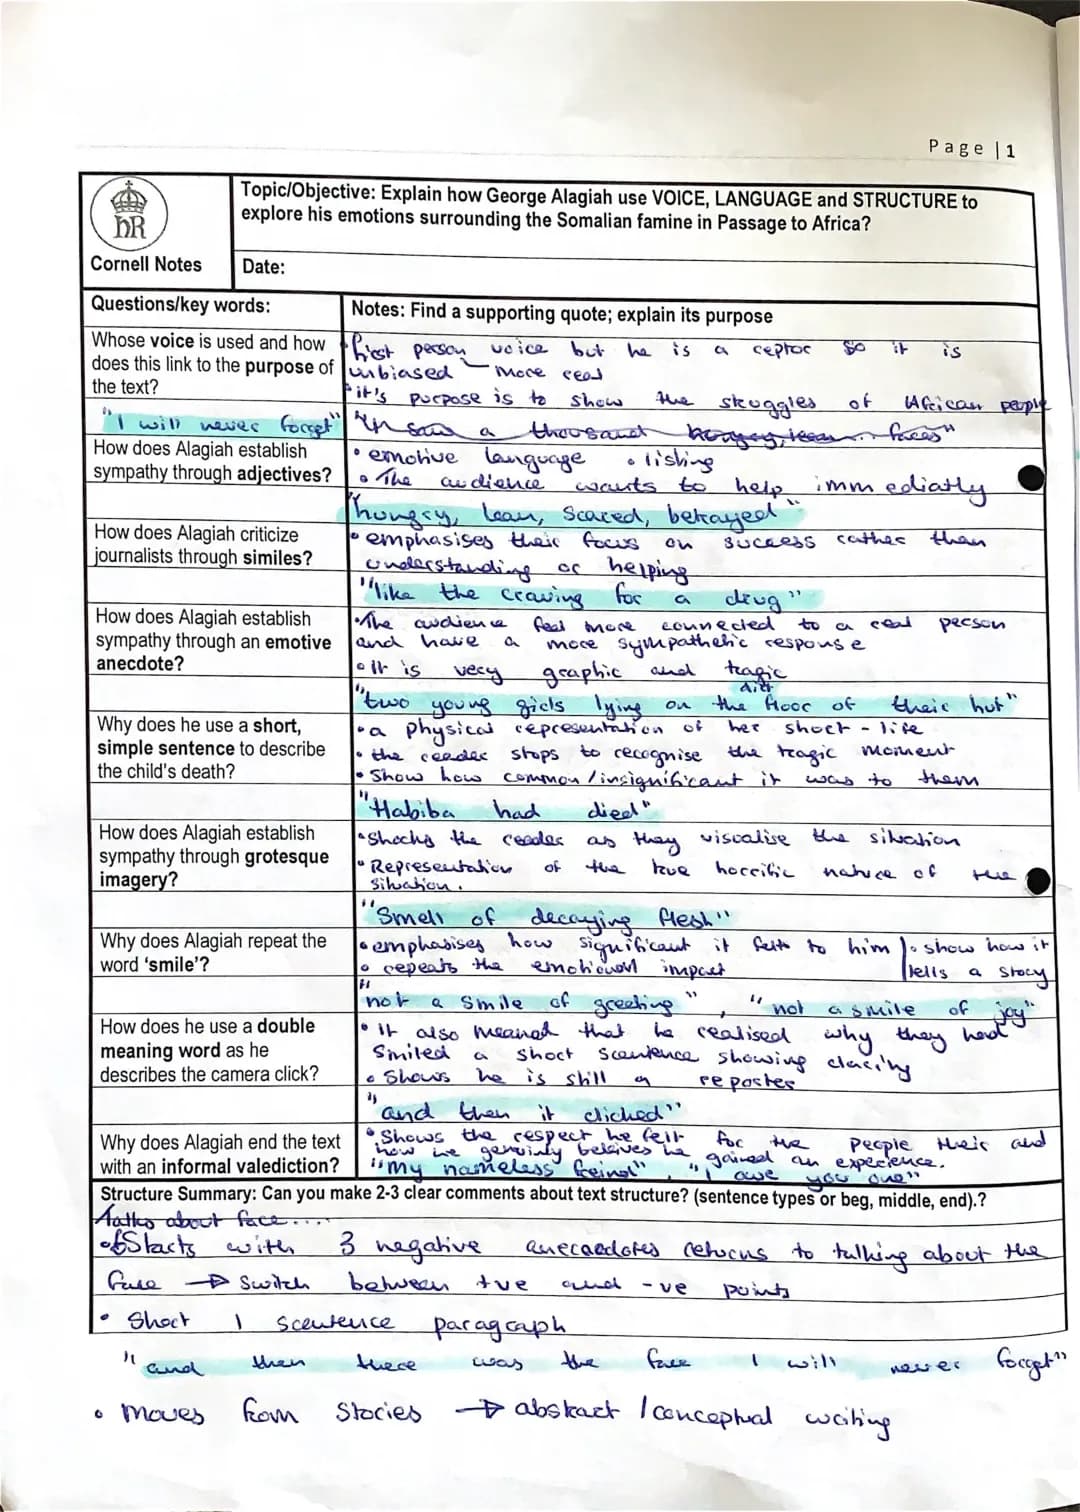 Page | 1
hR
Cornell Notes
Topic/Objective: Explain how George Alagiah use VOICE, LANGUAGE and STRUCTURE to
explore his emotions surrounding the Somalian famine in Passage to Africa?
Date:
Questions/key words:
Notes: Find a supporting quote; explain its purpose
Whose voice is used and how
does this link to the purpose of
the text?
"I will never forget"
first person voice but he is a reptor so it is
unbiased - more real
• it's purpose is to show the struggles of African people
"In saw a thousand hungry, lean faces"
How does Alagiah establish
sympathy through adjectives?
• emotive language • listing
• The audience wants to help immediatly
"hungry, lean, scared, betrayed"
How does Alagiah criticize
journalists through similes?
• emphasises their focus on success rather than
understanding or helping
"like the craving for a drug"
How does Alagiah establish
sympathy through an emotive
anecdote?
• The audience feel more connected to a real person
and have a more sympathetic response
• It is very graphic and tragic
dirt
"two young girls lying on the floor of their hut"
Why does he use a short,
simple sentence to describe
the child's death?
• a physical representation of her short - life
• the reader stops to recognise the tragic moment
• Show how common/insignificant it was to them
"Habiba had died"
How does Alagiah establish
sympathy through grotesque
imagery?
• Shocks the reader as they visualise the situation
• Representation of the true horrific nature of the
situation.
"Smell of decaying flesh"
Why does Alagiah repeat the
word 'smile'?
• emphasises how significant it felt to him • show how it
• repeats the emotional impact tells a story
"not a smile of greeting", "not a smile of joy"
How does he use a double
meaning word as he
describes the camera click?
• It also meaned that he realised why they had
Smiled a short scentence showing clarity
• Shows he is still a reporter
"and then it clicked"
Why does Alagiah end the text
with an informal valediction?
• Shows the respect he felt for the people their and
how he genuinly beleives he gained an experience.
"my nameless freind", "I owe you one"
Structure Summary: Can you make 2-3 clear comments about text structure? (sentence types or beg, middle, end).?
talks about face....
• Starts with 3 negative anecaedotes returns to talking about the
face → Switch between +ve and -ve points
• Short 1 scentence paragraph
"and then there was the face I will never forget"
• Moves from Stories → abstract / conceptual writing